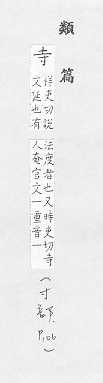 類篇
寺
祥吏切說
文廷也有
法度者也又時吏切寺
人奄官文一重音一
(寸 P.106)